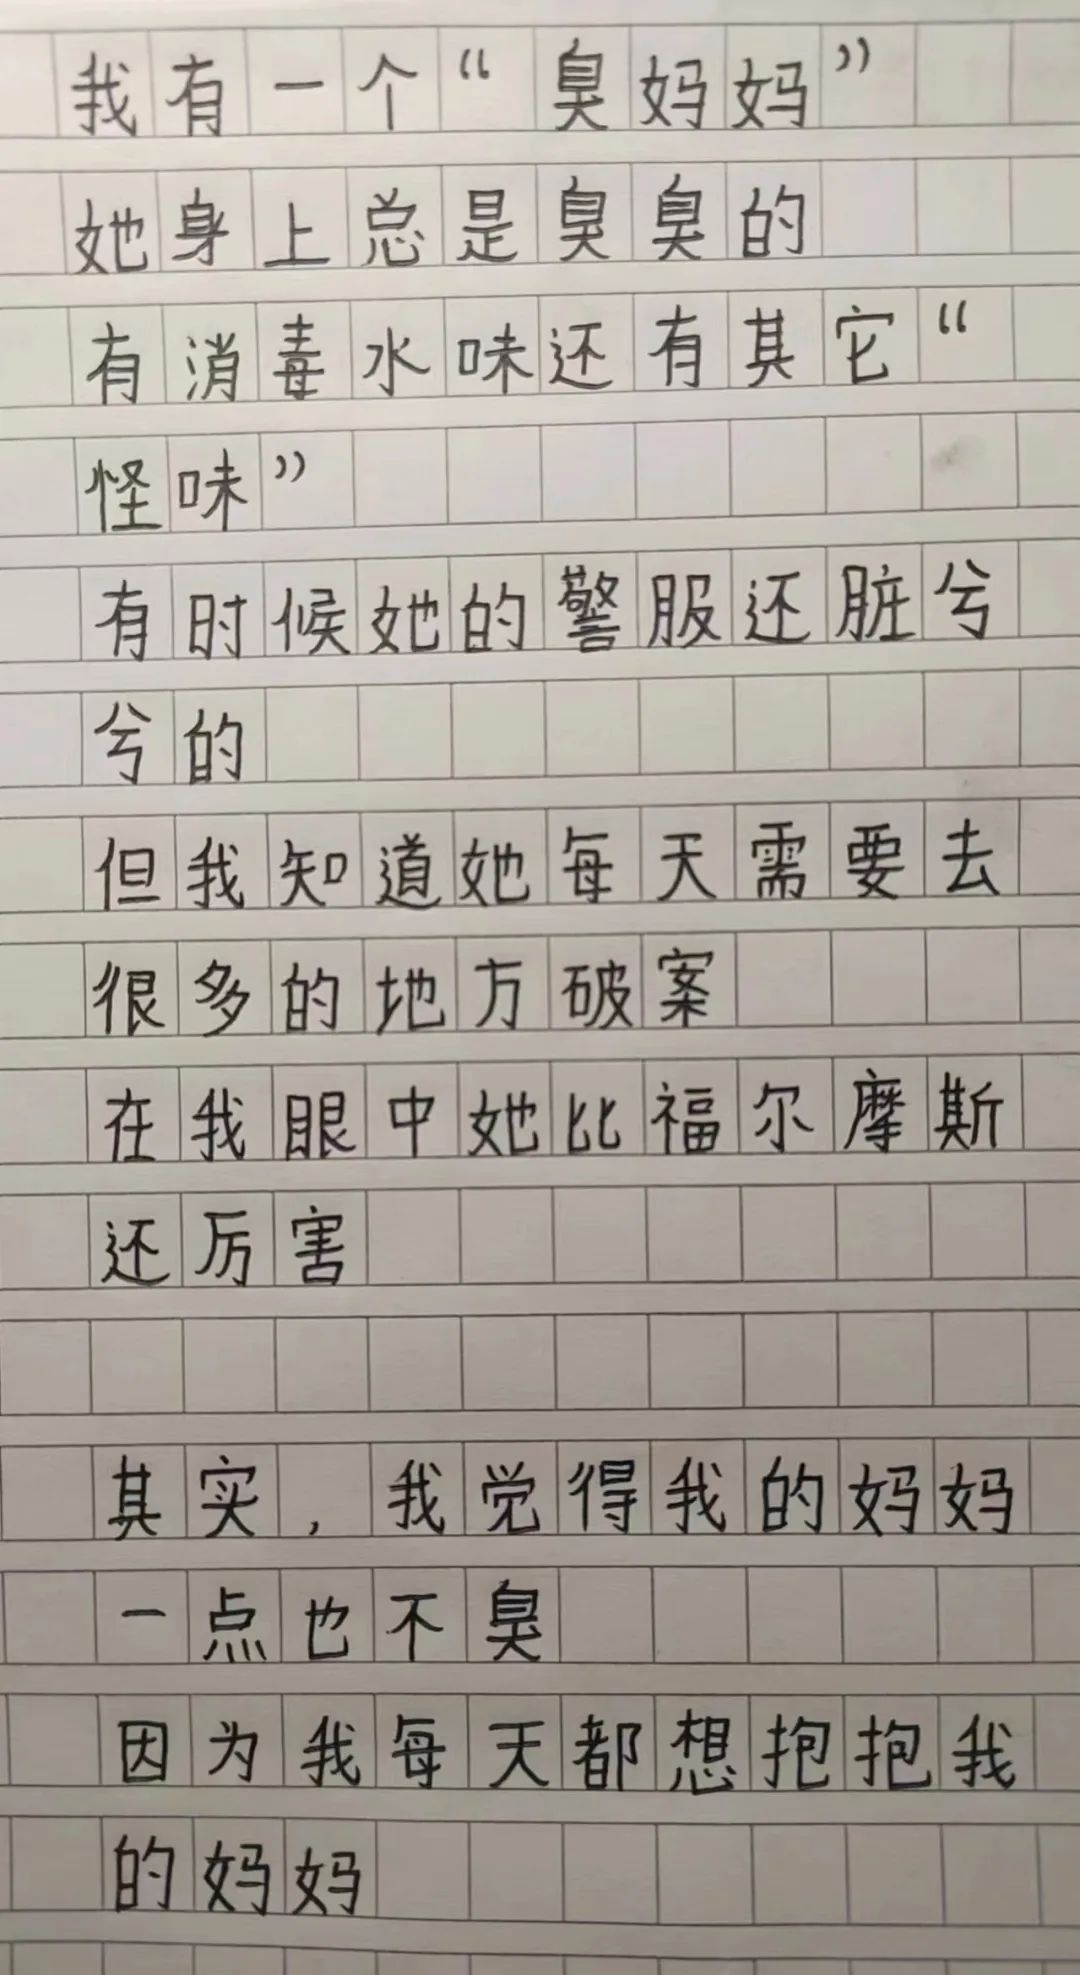 我有一个“臭妈妈”
她身上总是臭臭的
有消毒水味还有其它“
怪味”
有时候她的警服还脏兮
兮的
但我知道她每天需要去
很多的地方破案
在我眼中她比福尔摩斯
还厉害
其实，我觉得我的妈妈
一点也不臭
因为我每天都想抱抱我
的妈妈